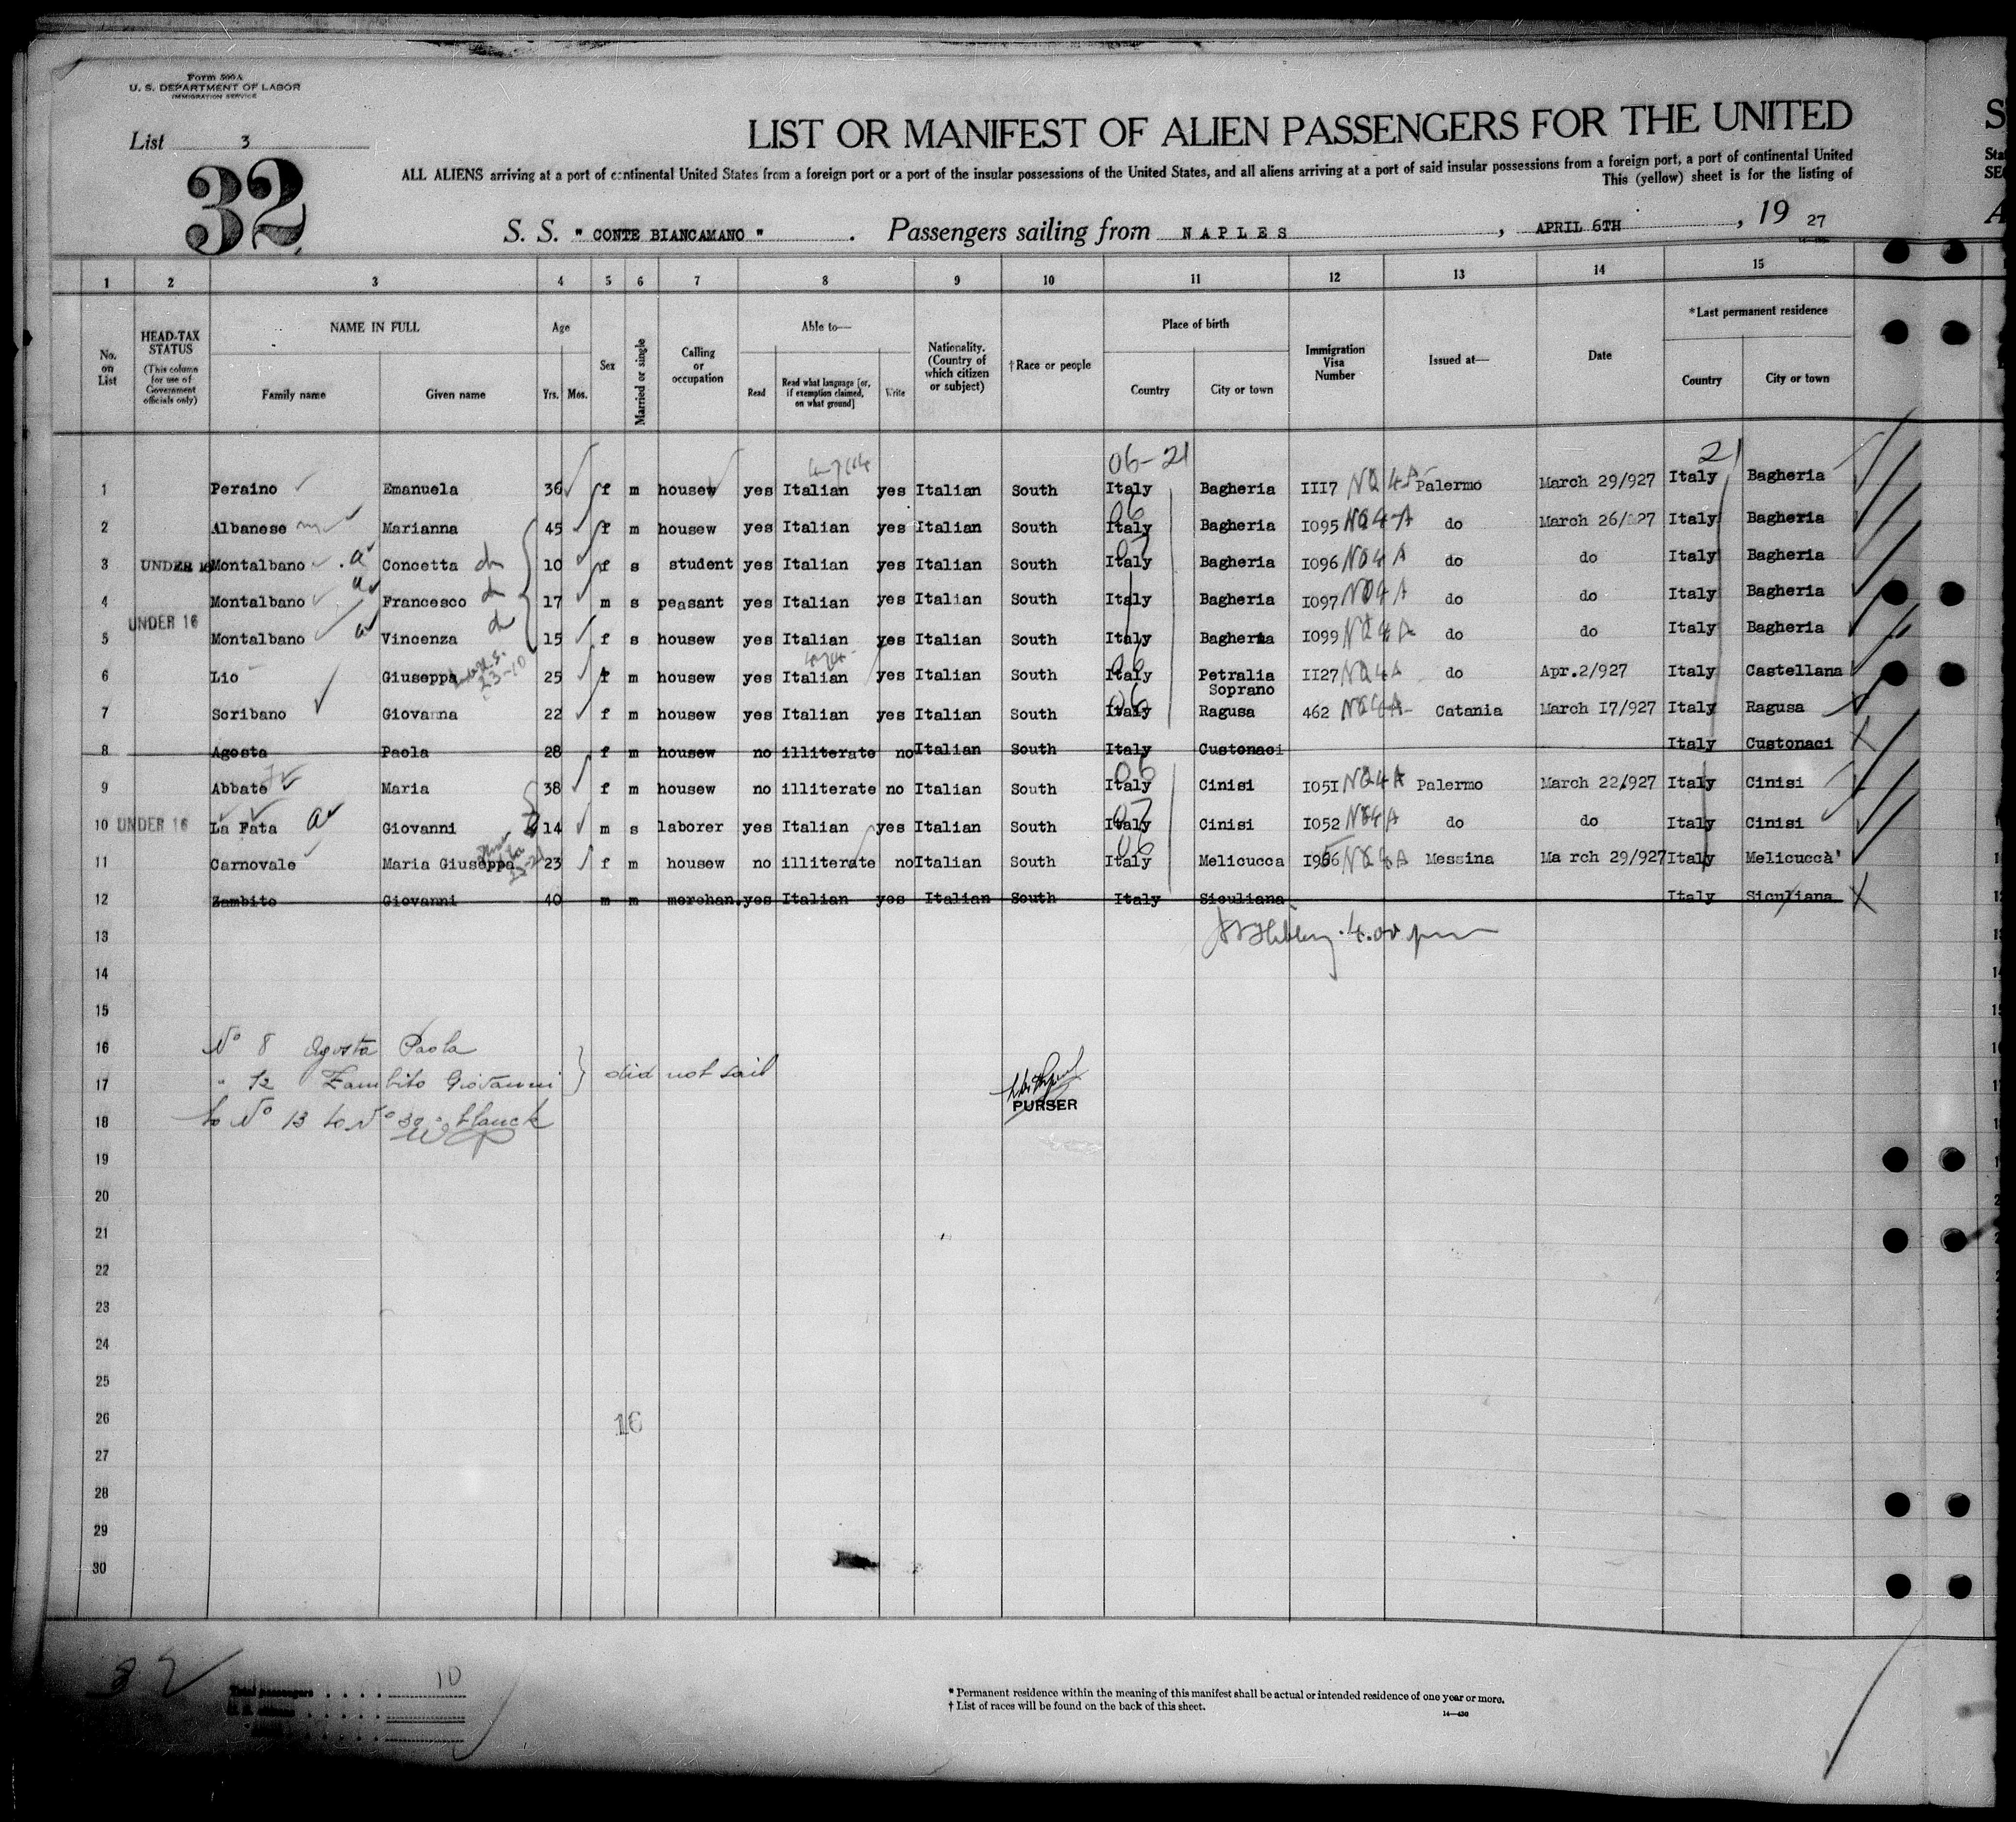 Form 500A
U. S. DEPARTMENT OF LABOR
IMMIGRATION SERVICE
List 3
32
LIST OR MANIFEST OF ALIEN PASSENGERS FOR THE UNITED
ALL ALIENS arriving at a port of continental United States from a foreign port or a port of the insular possessions of the United States, and all aliens arriving at a port of said insular possessions from a foreign port, a port of continental United
This (yellow) sheet is for the listing of
S. S. " CONTE BIANCAMANO " . Passengers sailing from NAPLES , APRIL 6TH , 19 27
1 2 3 4 5 6 7 8 9 10 11 12 13 14 15
No. on List
HEAD-TAX STATUS (This column for use of Government officials only)
NAME IN FULL
Family name Given name
Age
Yrs. Mos.
Sex
Married or single
Calling or occupation
Able to—
Read
Read what language [or, if exemption claimed, on what ground]
Write
Nationality. (Country of which citizen or subject)
†Race or people
Place of birth
Country City or town
Immigration Visa Number
Issued at—
Date
*Last permanent residence
Country City or town
06-21 21
1 Peraino Emanuela 36 f m housew yes Italian yes Italian South Italy Bagheria III7 NQ4A Palermo March 29/927 Italy Bagheria
2 Albanese Marianna 45 f m housew yes Italian yes Italian South Italy Bagheria I095 NQ4A do March 26/927 Italy Bagheria
3 UNDER 16 Montalbano Concetta 10 f s student yes Italian yes Italian South Italy Bagheria I096 NQ4A do do Italy Bagheria
4 Montalbano Francesco 17 m s peasant yes Italian yes Italian South Italy Bagheria I097 NQ4A do do Italy Bagheria
5 UNDER 16 Montalbano Vincenza 15 f s housew yes Italian yes Italian South Italy Bagheria I099 NQ4A do do Italy Bagheria
6 Lio Giuseppa 23-10 25 f m housew yes Italian yes Italian South Italy Petralia Soprano II27 NQ4A do Apr.2/927 Italy Castellana
7 Scribano Giovanna 22 f m housew yes Italian yes Italian South Italy Ragusa 462 NQ4A Catania March I7/927 Italy Ragusa
8 Agosta Paola 28 f m housew no illiterate no Italian South Italy Custonaci Italy Custonaci
9 Abbate Maria 38 f m housew no illiterate no Italian South Italy Cinisi I05I NQ4A Palermo March 22/927 Italy Cinisi
10 UNDER 16 La Fata Giovanni 14 m s laborer yes Italian yes Italian South Italy Cinisi I052 NQ4A do do Italy Cinisi
11 Carnovale Maria Giuseppa 23 f m housew no illiterate no Italian South Italy Melicucca NQ4A Messina Ma rch 29/927 Italy Melicuccà'
12 Zambito Giovanni 40 m m merchan. yes Italian yes Italian South Italy Siculiana Italy Siculiana
13 4.00 pm
14
15
16 No 8 Agosta Paola
17 " 12 Zambito Giovanni } did not sail
PURSER
18 to No 13 to No 30 - blanck
19
20
21
22
23
24
25
26
16
27
28
29
30
32
Total passengers . . . . 10
* Permanent residence within the meaning of this manifest shall be actual or intended residence of one year or more.
† List of races will be found on the back of this sheet.
14—430